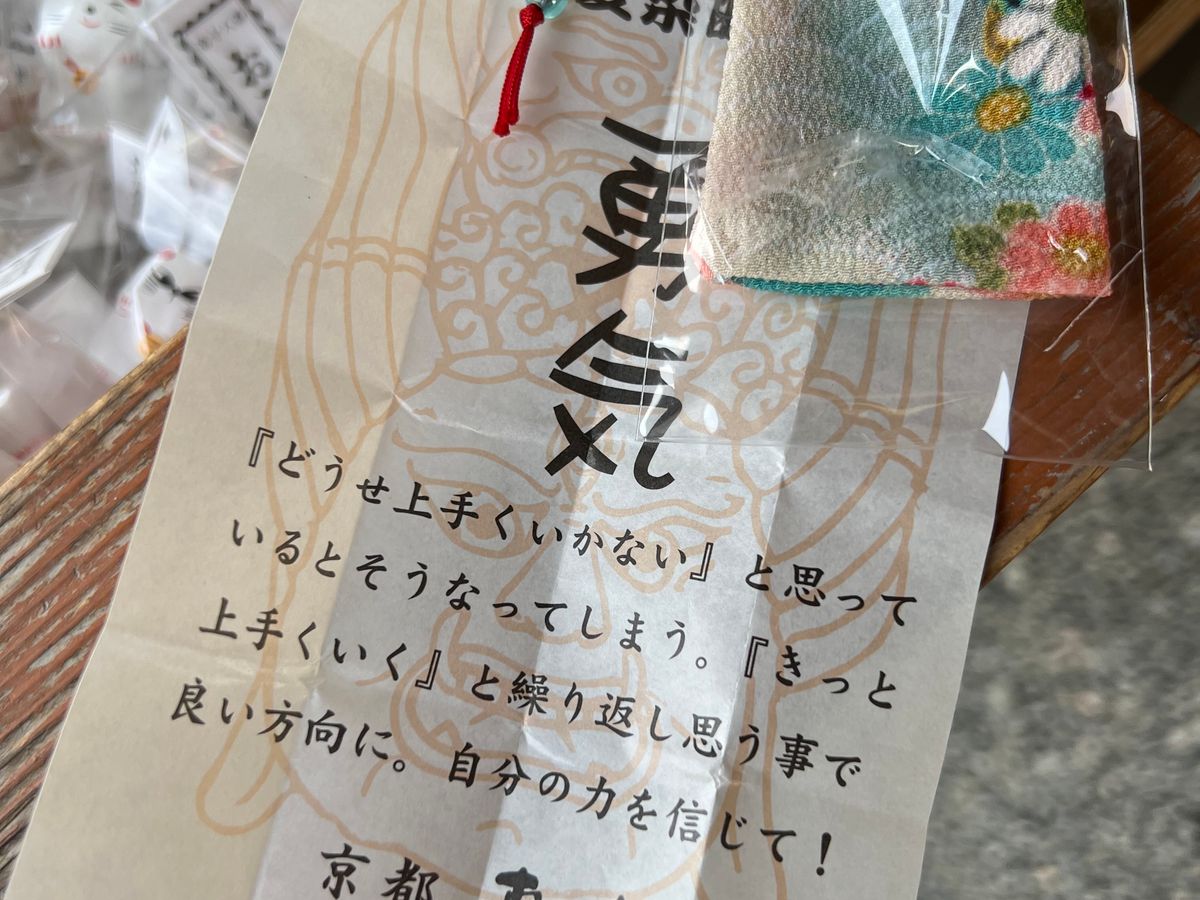 勇気
『どうせ上手くいかない』と思って
いるとそうなってしまう。『きっと
上手くいく』と繰り返し思う事で
良い方向に。自分の力を信じて！
京都